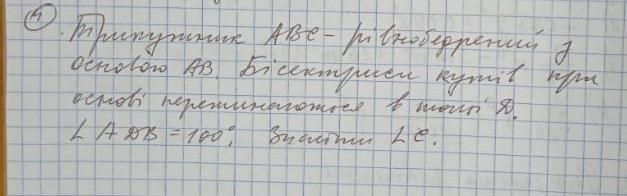 4. Трикутник ABC - рівнобедрений з
основою AB. Бісектриси кутів при
основі перетинаються в точці D.
∠ADB = 100°. Знайти ∠C.